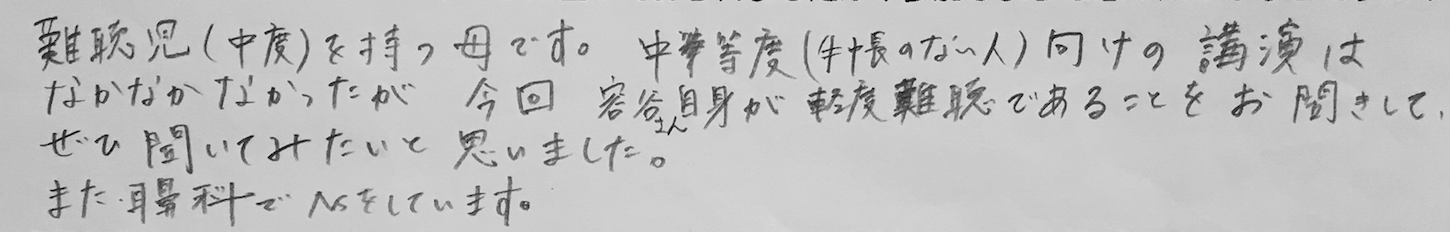 難聴児(中度)を持つ母です。 中等度(手帳のない人)向けの講演は
なかなかなかったが 今回 容谷さん自身が軽度難聴であることをお聞きして、
ぜひ聞いてみたいと思いました。
また耳鼻科でNsをしています。